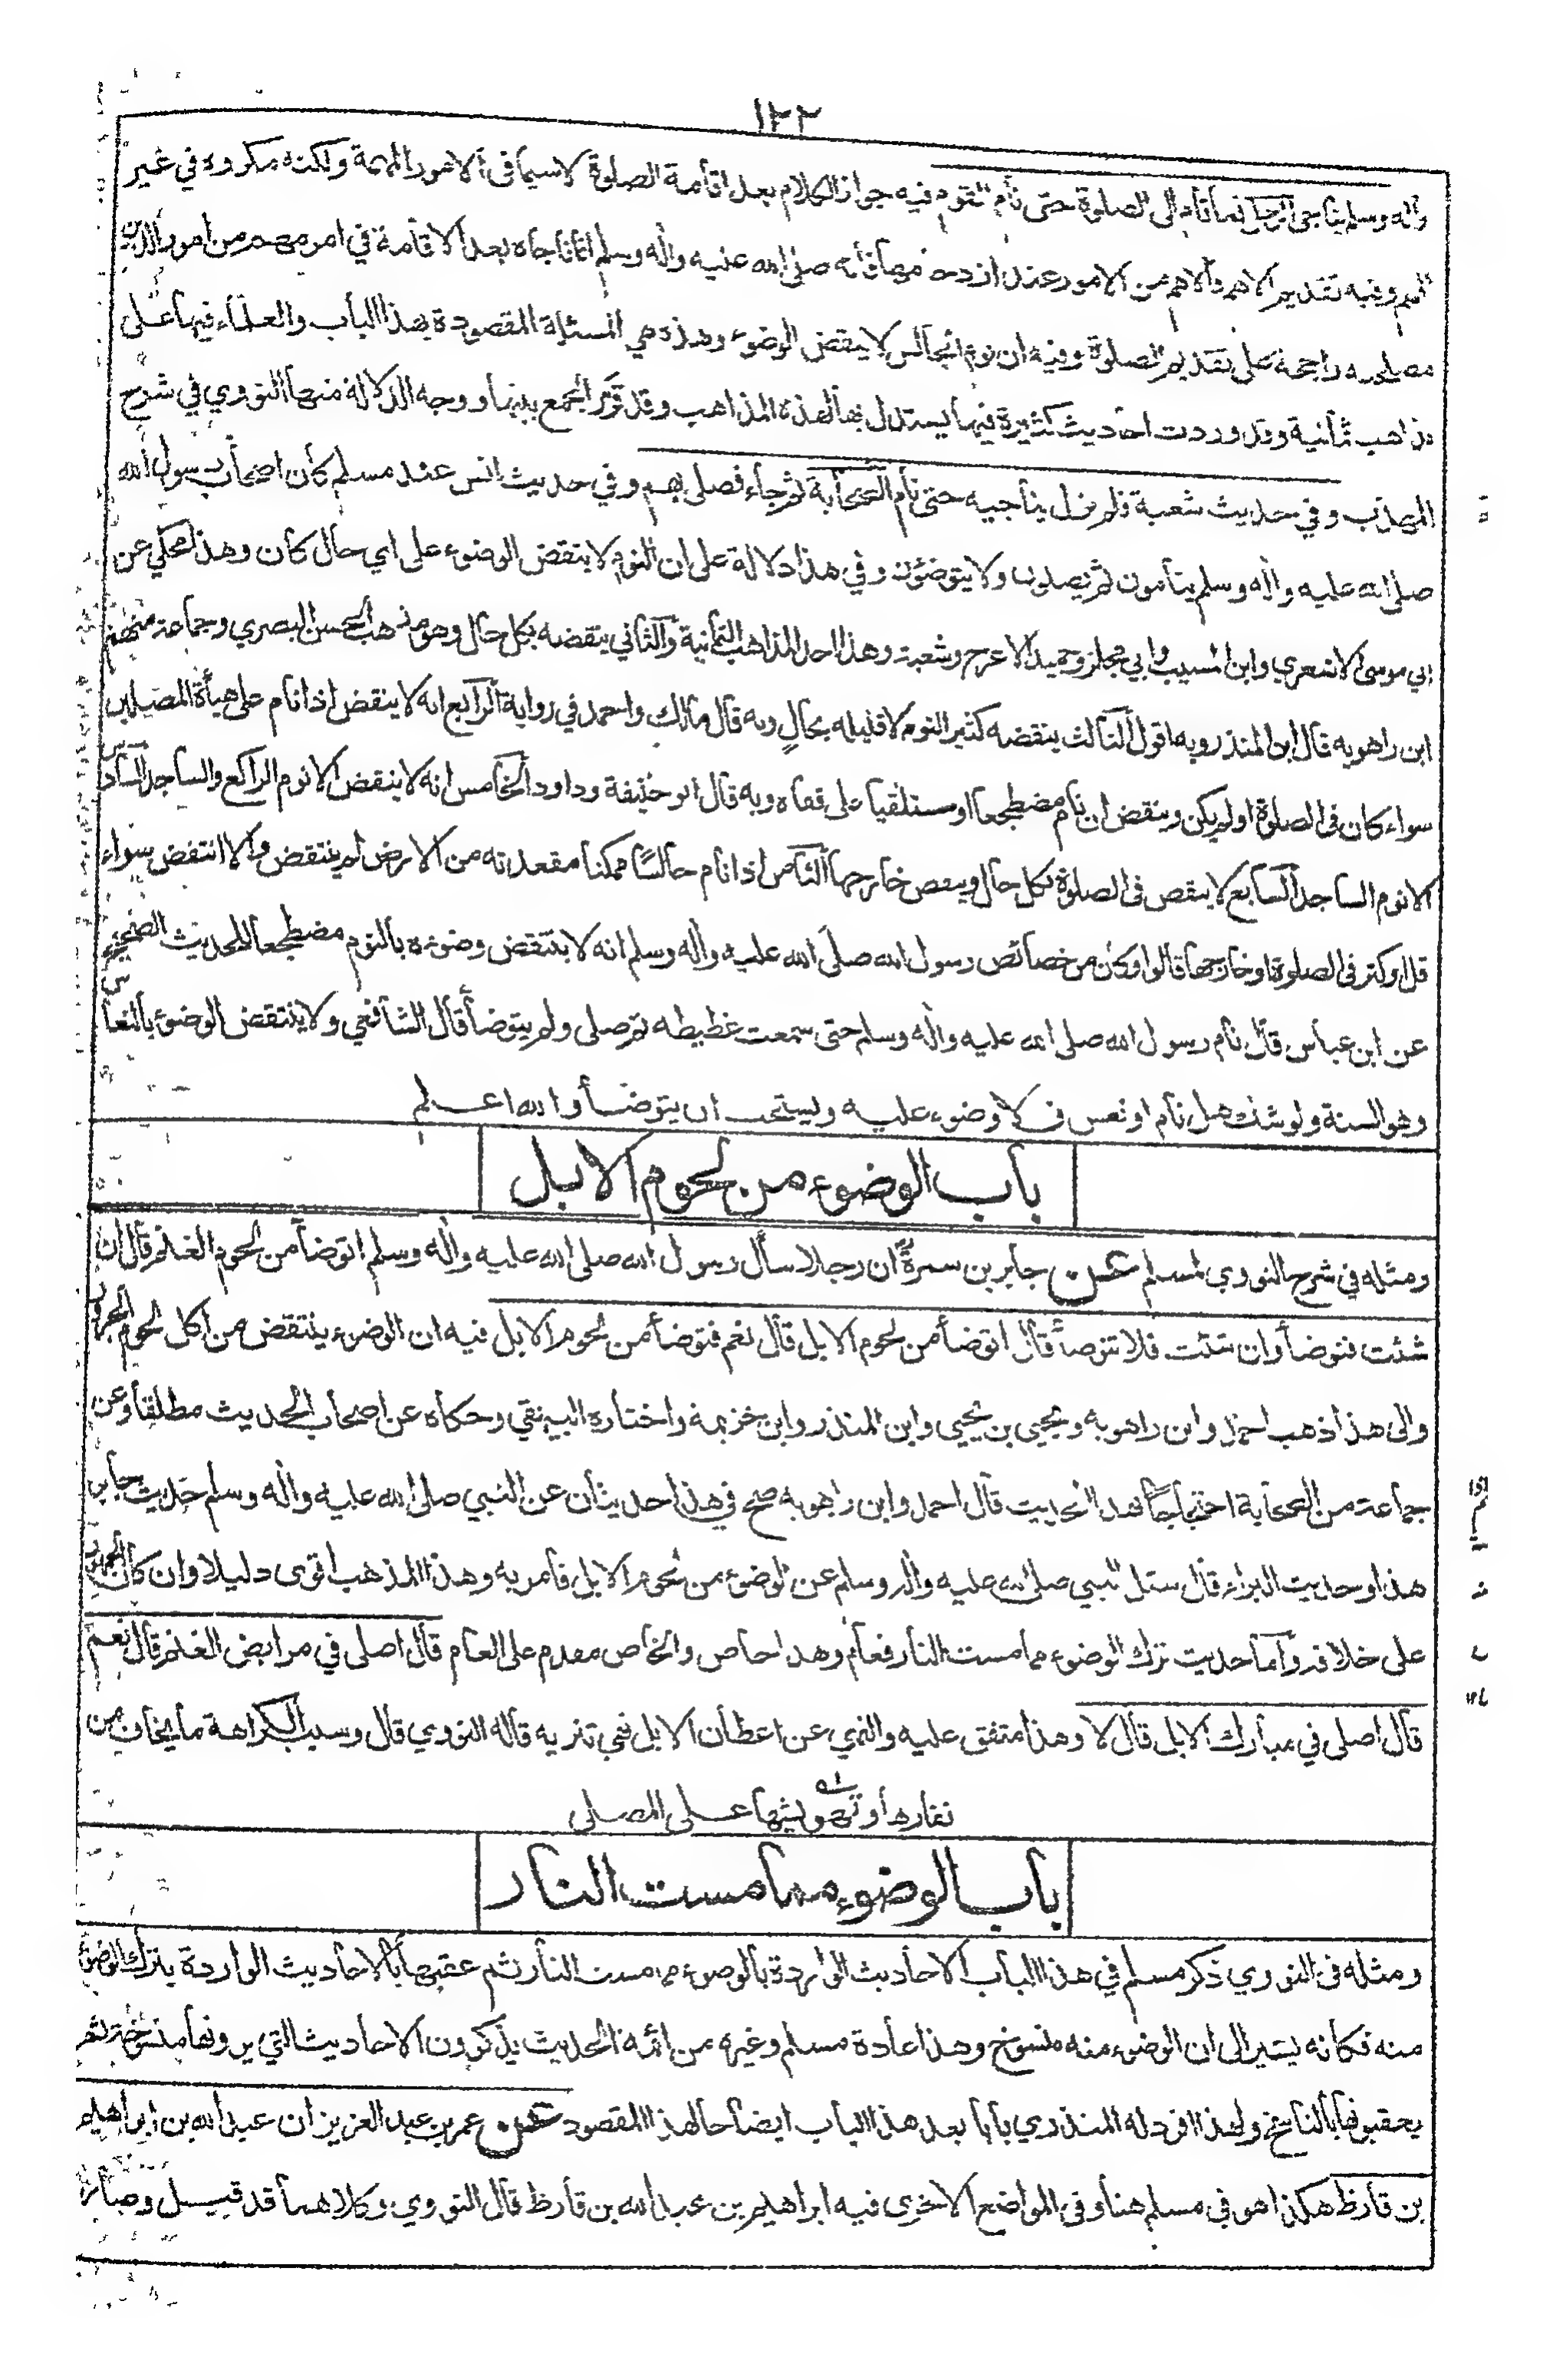 ١٢٢
وآله وسلم يناجي الرجل فما قام الى الصلوة حتى نام القوم فيه جواز الكلام بعد اقامة الصلوة لاسيما فى الامور المهمة ولكنه مكروه في غير
المهم وفيه تقديم الاهم فالاهم من الامور عند ازدحامها فانه صلى الله عليه وآله وسلم انما ناجاه بعد الاقامة في امر مهم من امور الدين
مصلحته راجحة على تقديم الصلوة وفيه ان نوم الجالس لا ينقض الوضوء وهذه هي المسئلة المقصودة بهذا الباب والعلماء فيها على
مذاهب ثمانية وقد وردت احاديث كثيرة فيها يستدل بها لهذه المذاهب وقد قرر الجمع بينها ووجه الدلالة منها النووي في شرح
المهذب وفي حديث شعبة فلم يزل يناجيه حتى نام الصحابة ثم جاء فصلى بهم وفي حديث انس عند مسلم كان اصحاب رسول الله
صلى الله عليه وآله وسلم ينامون ثم يصلون ولا يتوضئون وفي هذا دلالة على ان النوم لا ينقض الوضوء على اي حال كان وهذا محكي عن
ابي موسى الاشعري وابن المسيب وابي مجلز وحميد الاعرج وشعبة وهذا احد المذاهب الثمانية والثاني ينقضه بكل حال وهو مذهب الحسن البصري وجماعة منهم
ابن راهويه قال ابن المنذر وبه اقول الثالث ينقضه كثير النوم لا قليله بحال وبه قال مالك واحمد في رواية الرابع انه لا ينقض اذا نام على هيأة المصلين
سواء كان فى الصلوة او لم يكن وينقض ان نام مضطجعا او مستلقيا على قفاه وبه قال ابو حنيفة وداود الخامس انه لا ينقض الا نوم الراكع والساجد السادس
الا نوم الساجد السابع لا ينقض فى الصلوة بكل حال وينقض خارجها الثامن اذا نام جالسًا ممكنا مقعدته من الارض لم ينتقض والا انتقض سواء
قل او كثر فى الصلوة او خارجها قالوا وكان من خصائص رسول الله صلى الله عليه وآله وسلم انه لا ينتقض وضوءه بالنوم مضطجعا للحديث الصحيح
عن ابن عباس قال نام رسول الله صلى الله عليه وآله وسلم حتى سمعت غطيطه ثم صلى ولم يتوضأ قال الشافعي ولا ينتقض الوضوء بالنعاس
وهو السنة ولو شك هل نام او نعس ف لا وضوء عليه ويستحب ان يتوضأ والله اعلم
باب الوضوء من لحوم الابل
ومثله في شرح النووي لمسلم عن جابر بن سمرة ان رجلا سأل رسول الله صلى الله عليه وآله وسلم اتوضأ من لحوم الغنم قال ان
شئت فتوضأ وان شئت فلا تتوضأ قال اتوضأ من لحوم الابل قال نعم فتوضأ من لحوم الابل فيه ان الوضوء ينتقض من اكل لحوم الجزور
والى هذا ذهب احمد وابن راهويه ويحيى بن يحيى وابن المنذر وابن خزيمة واختاره البيهقي وحكاه عن اصحاب الحديث مطلقا وعن
جماعة من الصحابة احتجاجًا بهذا الحديث قال احمد وابن راهويه صح في هذا حديثان عن النبي صلى الله عليه وآله وسلم حديث جابر
هذا وحديث البراء قال سئل النبي صلى الله عليه وآله وسلم عن الوضوء من لحوم الابل فأمر به وهذا المذهب اقوى دليلا وان كان الجمهور
على خلافه واما حديث ترك الوضوء مما مست النار فعام وهذا خاص والخاص مقدم على العام قال اصلي في مرابض الغنم قال نعم
قال اصلي في مبارك الابل قال لا وهذا متفق عليه والنهي عن اعطان الابل نهي تنزيه قاله النووي قال وسبب الكراهة ما يخاف من
نفارها وتهويشها على المصلي
باب الوضوء مما مست النار
ومثله فى النووي ذكر مسلم في هذا الباب الاحاديث الواردة بالوضوء مما مست النار ثم عقبها بالاحاديث الواردة بترك الوضوء
منه فكانه يشير الى ان الوضوء منه منسوخ وهذا عادة مسلم وغيره من ائمة الحديث يذكرون الاحاديث التي يرونها منسوخة ثم
يعقبونها بالناسخ ولهذا افرد له المنذري بابا بعد هذا الباب ايضاحا لهذا المقصود عن عمر بن عبد العزيز ان عبد الله بن ابراهيم
بن قارظ هكذا هو في مسلم هنا وفى المواضع الاخرى فيه ابراهيم بن عبد الله بن قارظ قال النووي وكلاهما قد قيل وصار